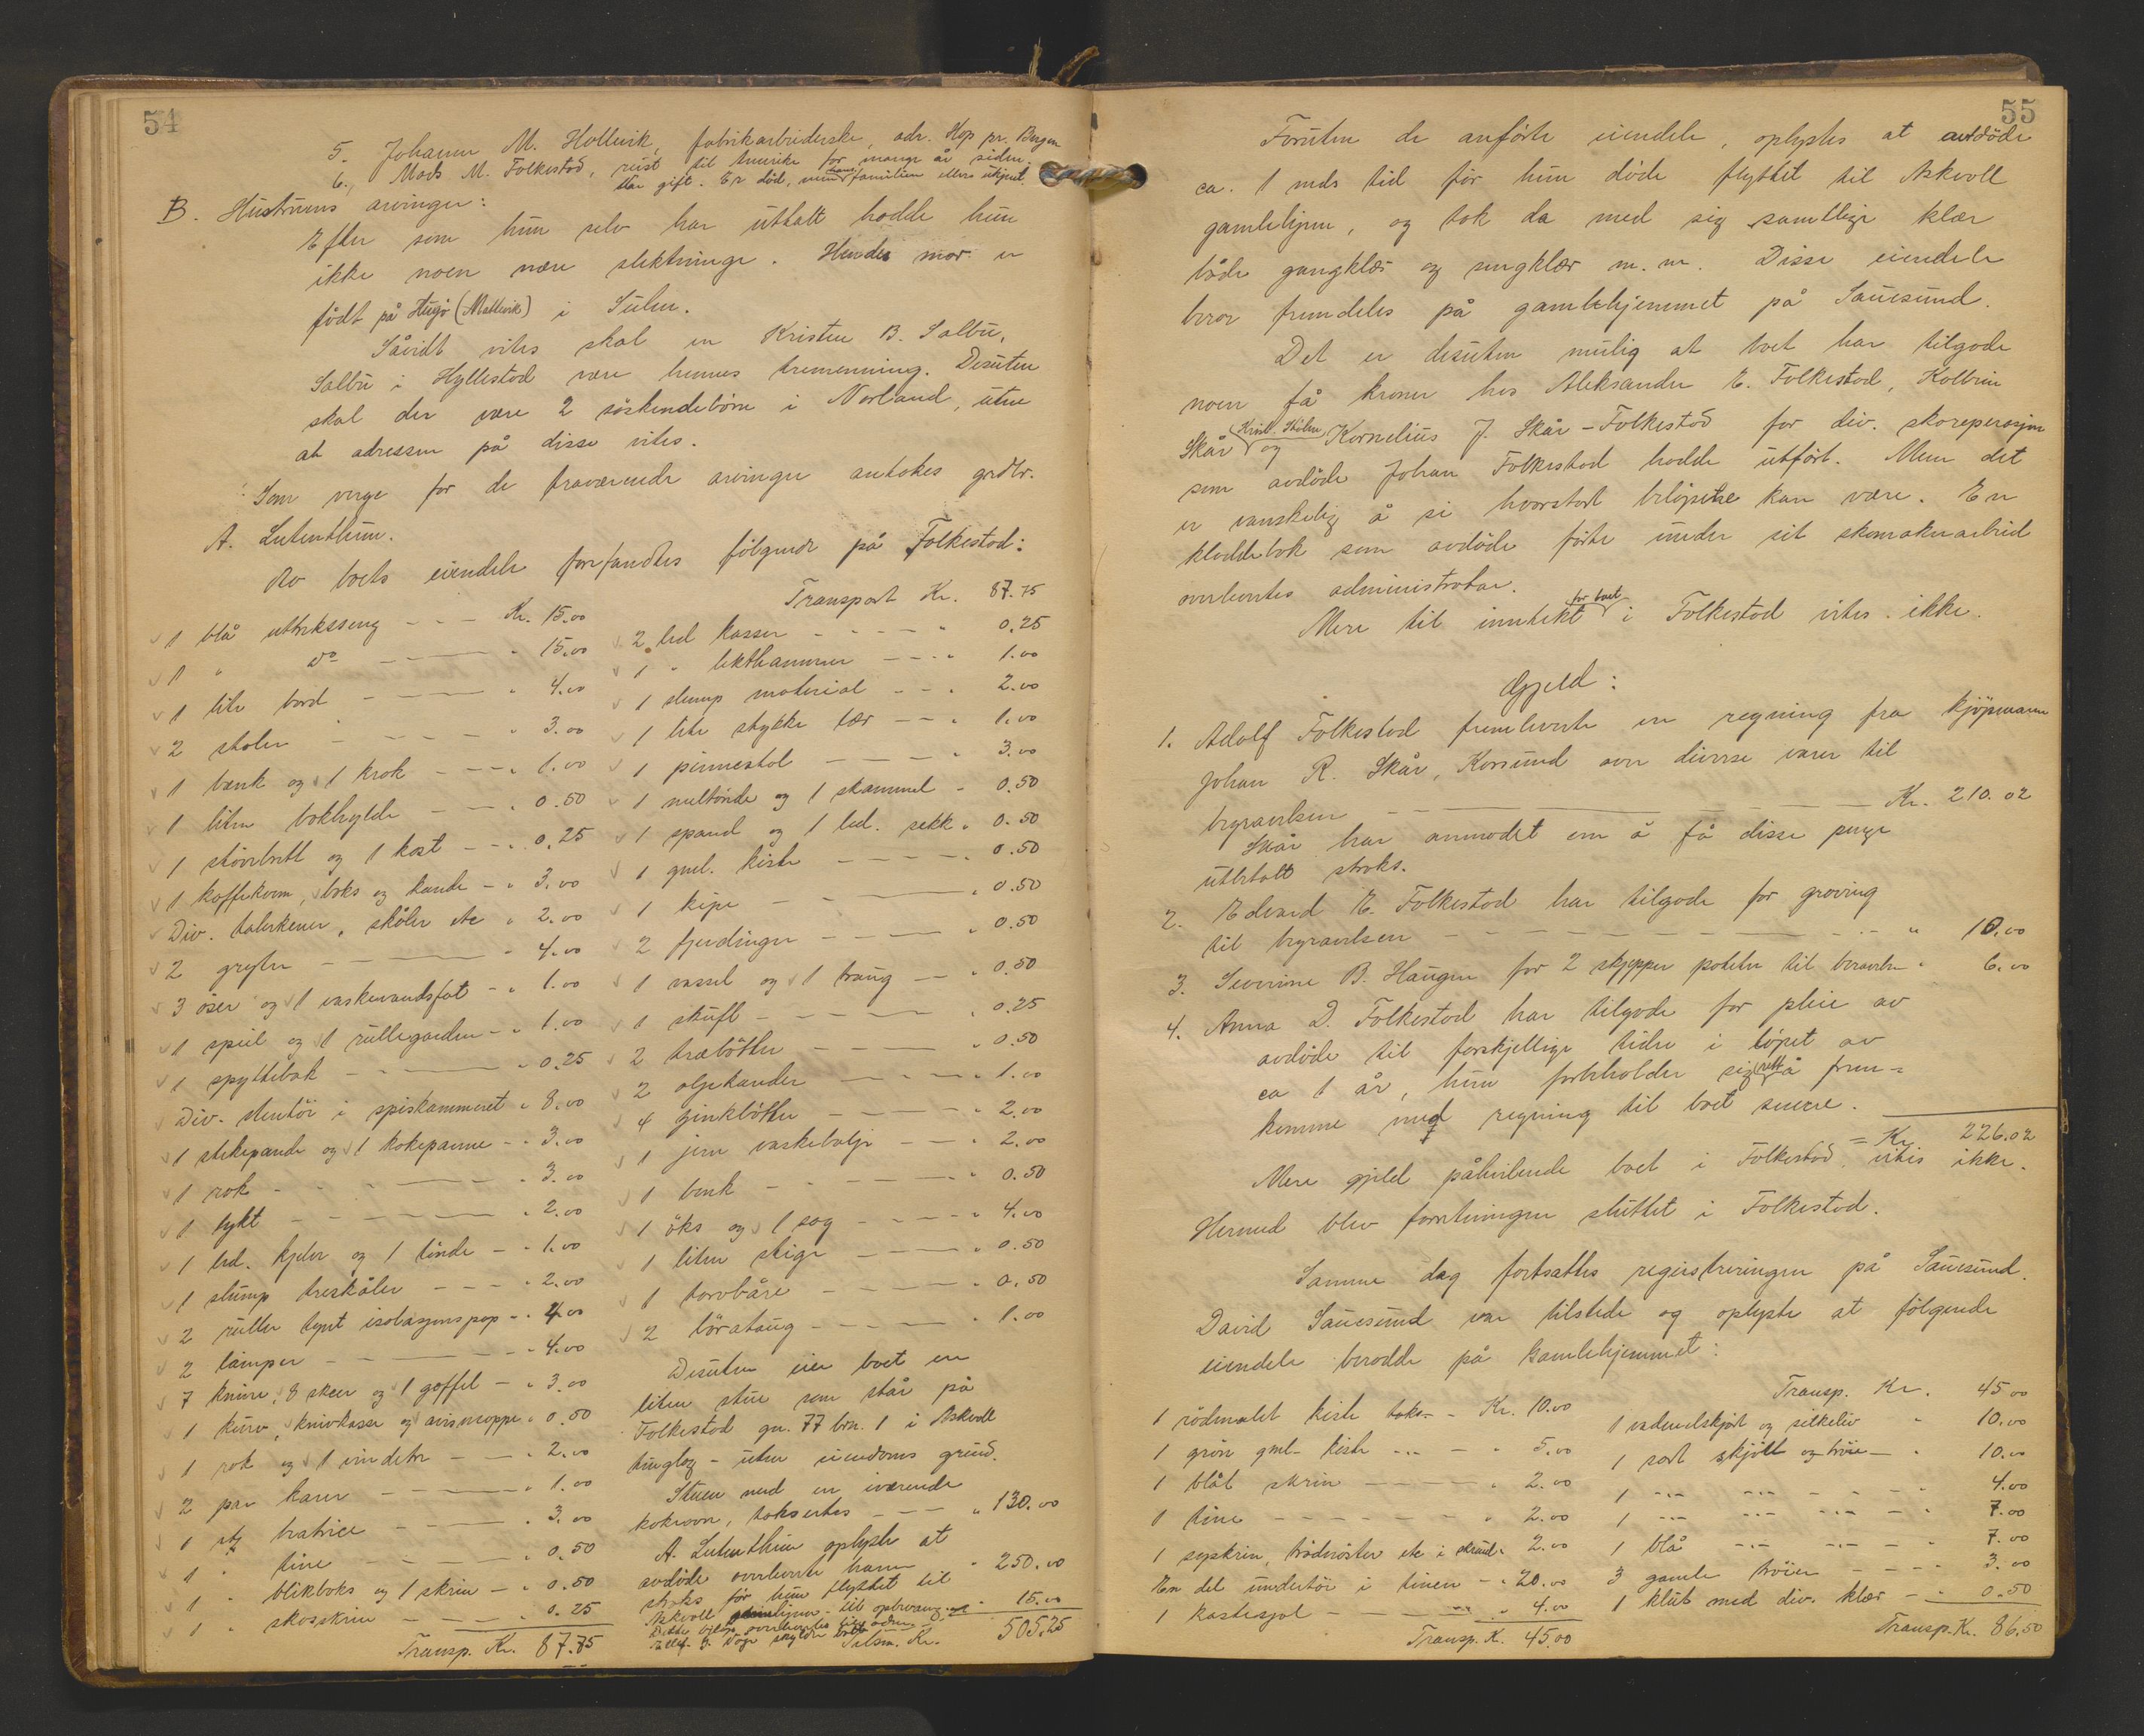 54
5. Johanna M. Hollevik, fabrikarbeiderske, adr. Hop pr. Bergen
6. Mads M. Folkestad, reist til Amerika for mange år siden.
Var gift. Er død, men hans familien ellers ukjent.
B. Hustruens arvinger:
Efter som hun selv har uttalt hadde hun
ikke noen nære slektninge. Hendes mor er
født på Hugø (Mattevik) i Sulen.
Såvidt vites skal en Kristen B. Salbu,
Salbu i Hyllestad være hennes tremenning. Desuten
skal der være 2 söskendebörn i Norland, uten
at adressen på disse vites.
Som verge for de fraværende arvinger antokes grdbr.
A. Lutenthun.
Av boets eiendele forefandtes följende på Folkestad:
1 blå uttræksseng - - - Kr. 15.00
1 " do - - " 15.00
1 lite bord - - " 4.00
2 stoler - - - " 3.00
1 bænk og 1 krak - - - " 1.00
1 liten bokhylde - - " 0.50
1 støvebrett og 1 kost - - " 0.25
1 kaffekvern, boks og kande - " 3.00
Div. talerkener, skåler etc " 2.00
2 gryter - - " 4.00
3 öser og 1 vaskevandsfat - " 1.00
1 speil og 1 rullegardin - " 1.00
1 spyttebak - - " 0.25
Div. stentöi i spiskammeret " 8.00
1 stekepande og 1 kokepanne - " 3.00
1 rok - - " 3.00
1 lykt - - " 2.00
1 trd. kjeler og 1 tinde - " 1.00
1 slump treskåler - - - " 2.00
2 ruller tynt isolasjonspap - " 4.00
2 lamper - - " 4.00
7 knive, 8 skeer og 1 gaffel - " 3.00
1 kurv, knivkasse og avismappe " 0.50
1 rok og 1 vindetre - - " 2.00
2 par karer - - " 1.00
1 stk bratrice - - " 3.00
1 " tine - - " 0.50
1 " blikboks og 1 skrin - " 0.50
1 " skoskrin - - " 0.25
Transp. Kr. 87.75
Transport Kr. 87.75
2 trd kasser - - - - " 0.25
1 " lekthammer - - - " 1.00
1 slump material - - " 2.00
1 lite stykke lær - - " 1.00
1 pinnestol - - - " 3.00
1 meltönde og 1 skammel - 0.50
1 spand og 1 trd. sekk " 0.50
1 gml. kiste - - - - " 0.50
1 kipe - - " 0.50
2 fjerdinger - - - " 0.50
1 vassel og 1 traug - - " 0.50
1 skufl - - - - " 0.25
2 træbötter - - - " 0.50
2 oljekander - - - " 1.00
4 zinkbötter - - - " 2.00
1 jern vaskebalje - - " 2.00
1 benk - - - - " 0.50
1 öks og 1 sag - - - " 4.00
1 liten stige - - - " 0.50
1 torvbåre - - - " 0.50
2 törataug - - - " 1.00
Desuten eier boet en
liten stue som står på
Folkestad gn. 77 brn. 1 i Askvoll
tinglag - uten eiendoms grund.
Stuen med en iværende
kokeovn, taksertes - - - " 130.00
A. Lutenthun oplyste at
avdöde overleverte ham " 250.00
straks för hun flyttet til
Askvoll gamlehjem - til opbevaring
Dette belöp overleveres
" 15.00
Tilsm. Kr. 505.25
55
Foruten de anförte eiendele, oplystes at avdöde
ca. 1 mds tid för hun döde flyttet til Askvoll
gamlehjem, og tok da med sig samtlige klær
både gangklær og sengklær m. m. Disse eiendele
beror fremdeles på gamlehjemmet på Sauesund.
Det er desuten mulig at boet har tilgode
noen få kroner hos Aleksander E. Folkestad, Kolbein
Skår og Kornelius J. Skår - Folkestad for div. skoreperasjon
som avdöde Johan Folkestad hadde utfört. Men det
er vanskelig å si hvorstort belöpene kan være. En
kladdebok som avdöde förte under sit skomakerarbeid
overlevertes administrator.
Mere til inntekt for boet i Folkestad vites ikke.
Gjeld:
1. Adolf Folkestad fremleverte en regning fra kjöpmann
Johan R. Skår, Korssund over diverse varer til
begravelsen - - - Kr. 210.02
Skår har anmodet om å få disse penge
utbetalt straks.
2. Edvard E. Folkestad har tilgode for graving
til begravelsen - - - " 10.00
3. Severine B. Haugen for 2 skjepper poteter til begravelsen " 6.00
4. Anna D. Folkestad har tilgode for pleie av
avdöde til forskjellige tider i löpet av
ca 1 år, hun forbeholder sig rett å frem-
komme med regning til boet senere.
= Kr. 226.02
Mere gjeld påhvilende boet i Folkestad vites ikke.
Hermed blev forretningen sluttet i Folkestad.
Samme dag fortsattes registreringen på Sauesund.
David Sauesund var tilstede og oplyste at fölgende
eiendele berodde på Gamlehjemmet:
1 rödmalet kiste takse. - Kr. 10.00
1 grön gml. kiste - - - " 5.00
1 blåt skrin - - - " 2.00
1 tine - - - - " 2.00
1 syskrin, trådnöster etc i skrin " 2.00
En del undertöi i tinen - " 20.00
1 kastesjal - - " 4.00
Transp. K. 45.00
Transp. Kr. 45.00
1 vadmelskjört og silkeliv " 10.00
1 sort skjört og tröie - " 10.00
1 -"- -"- - - " 4.00
1 -"- -"- -"- - " 7.00
1 blå -"- -"- - " 7.00
3 gamle tröier - - - " 3.00
1 klut med div. klær - " 0.50
Transp. Kr. 86.50